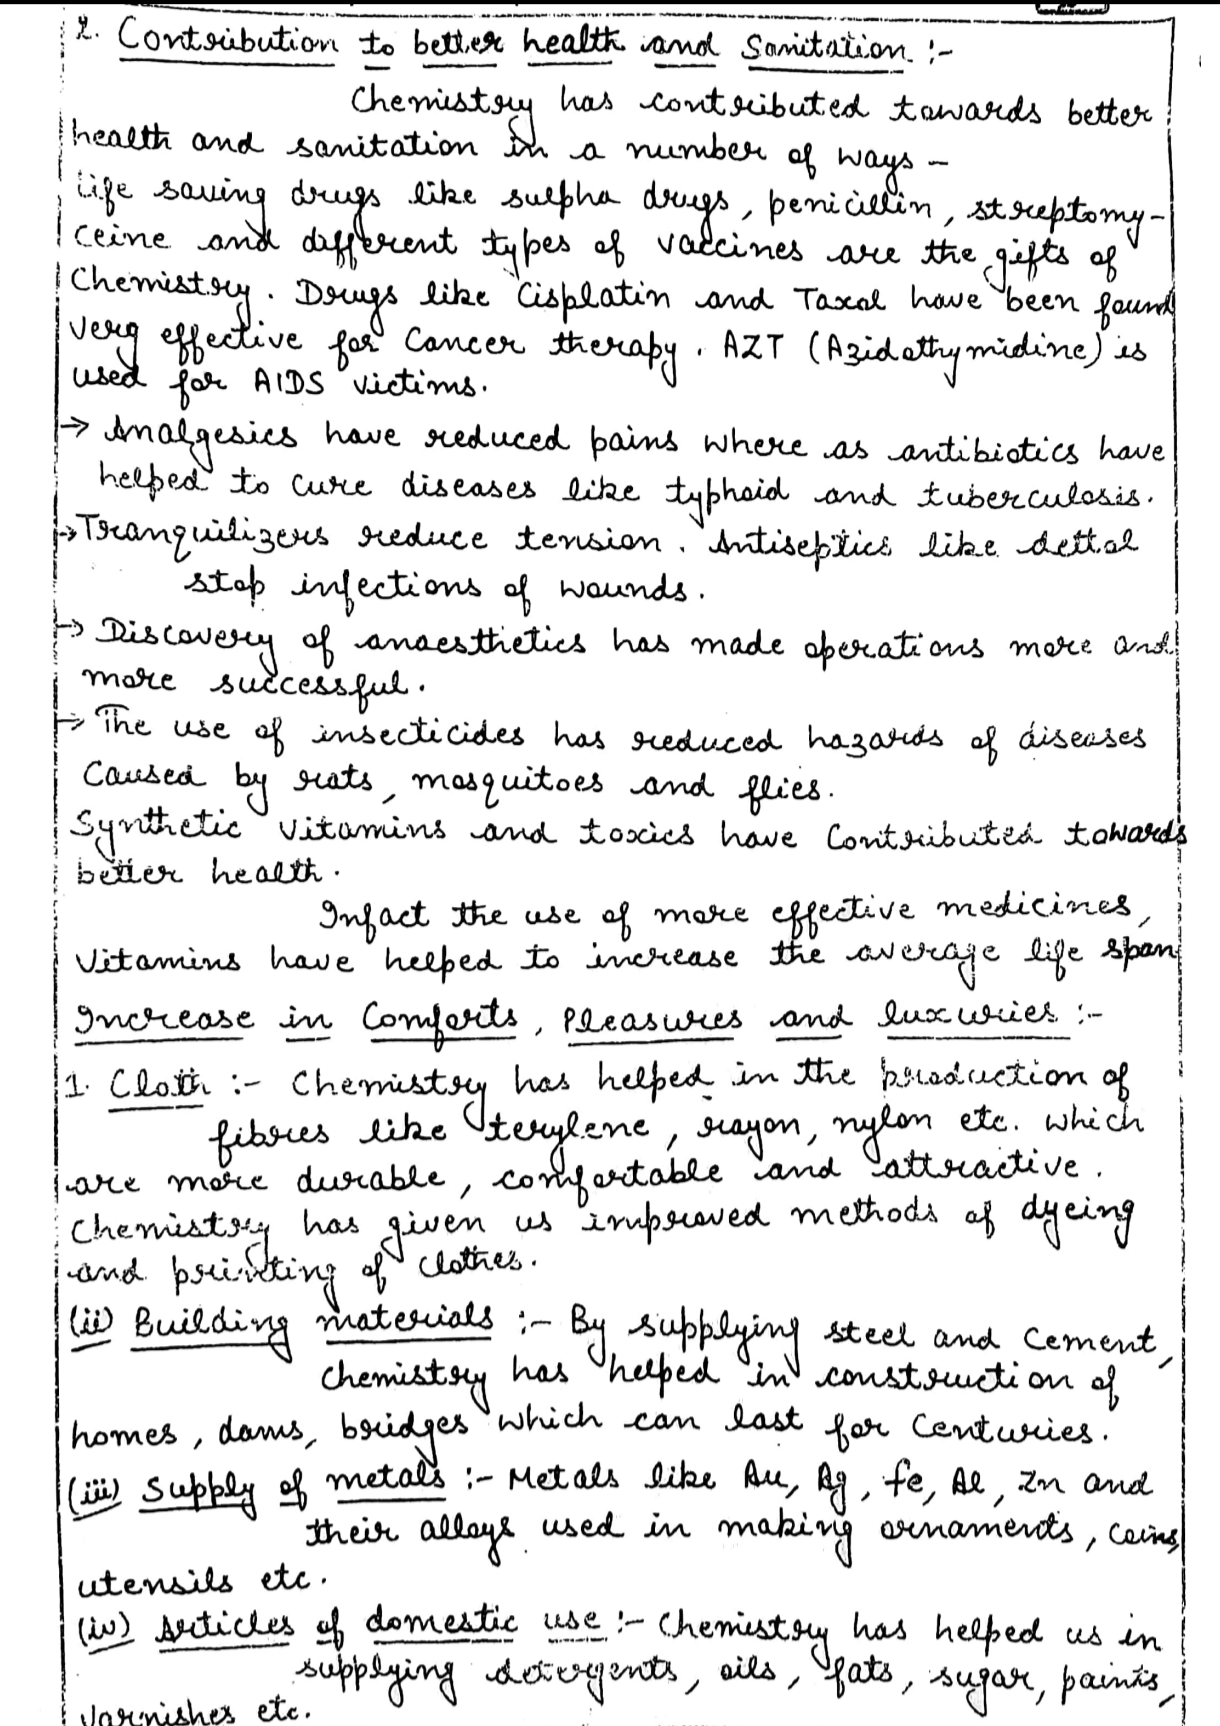 2. Contribution to better health and Sanitation :-
Chemistry has contributed towards better
health and sanitation in a number of ways -
life saving drugs like sulpha drugs, penicillin, streptomy-
ceine and different types of vaccines are the gifts of
Chemistry. Drugs like Cisplatin and Taxol have been found
very effective for Cancer therapy. AZT (Azidothymidine) is
used for AIDS victims.
→ Analgesics have reduced pains where as antibiotics have
helped to cure diseases like typhoid and tuberculosis.
→ Tranquilizers reduce tension. Antiseptics like dettol
stop infections of wounds.
→ Discovery of anaesthetics has made operations more and
more successful.
→ The use of insecticides has reduced hazards of diseases
Caused by rats, mosquitoes and flies.
Synthetic vitamins and toxics have Contributed towards
better health.
Infact the use of more effective medicines,
Vitamins have helped to increase the average life span
Increase in Comforts, Pleasures and luxuries :-
1. Cloth :- Chemistry has helped in the production of
fibres like terylene, rayon, nylon etc. which
are more durable, comfortable and attractive.
Chemistry has given us improved methods of dyeing
and printing of clothes.
(ii) Building materials :- By supplying steel and cement,
Chemistry has helped in construction of
homes, dams, bridges which can last for Centuries.
(iii) Supply of metals :- Metals like Au, Ag, Fe, Al, Zn and
their alloys used in making ornaments, coins,
utensils etc.
(iv) Articles of domestic use :- Chemistry has helped us in
supplying detergents, oils, fats, sugar, paints,
varnishes etc.